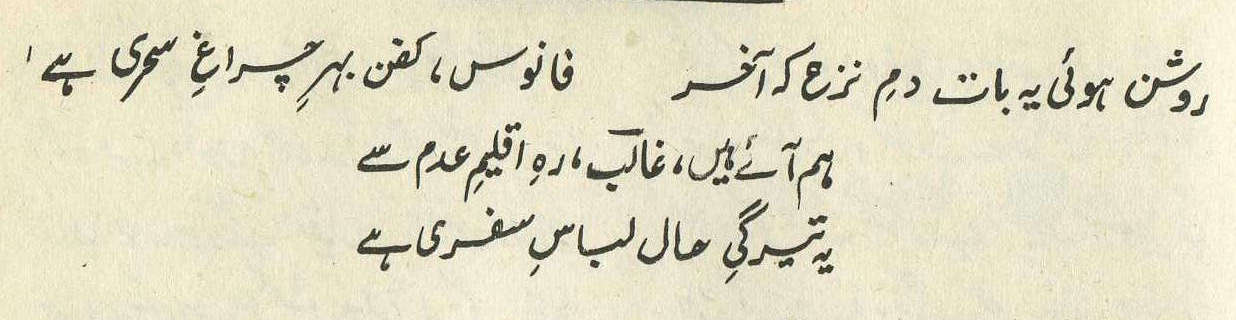 روشن ہوئی یہ بات دمِ نزع کہ آخر فانوس، کفن بہرِ چراغِ سحری ہے ۱
ہم آئے ہیں، غالب، رہِ اقلیمِ عدم سے
یہ تیرگیِ حال لباسِ سفری ہے